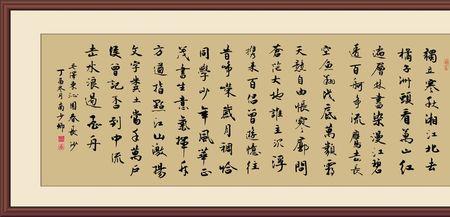 獨立寒秋湘江北去
橘子洲頭看萬山紅
遍層林盡染漫江碧
透百舸爭流鷹擊長
空魚翔淺底萬類霜
天競自由悵寥廓問
蒼茫大地誰主沉浮
攜來百侶曾遊憶往
昔崢嶸歲月稠恰
同學少年風華正
茂書生意氣揮斥
方遒指點江山激揚
文字糞土當年萬戶
侯曾記否到中流
击水浪遏飛舟
毛澤東沁園春長沙
丁酉冬月南少卿